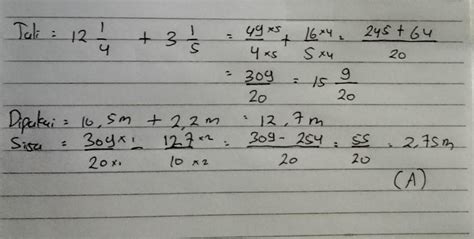 Tali = 12 1/4 + 3 1/5 = 49 ×5 / 4 ×5 + 16 ×4 / 5 ×4 = 245 + 64 / 20
= 309 / 20 = 15 9/20
Dipakai = 10,5 m + 2,2 m = 12,7 m
Sisa = 309 ×1 / 20 ×1 - 127 ×2 / 10 ×2 = 309 - 254 / 20 = 55 / 20 = 2,75 m
(A)